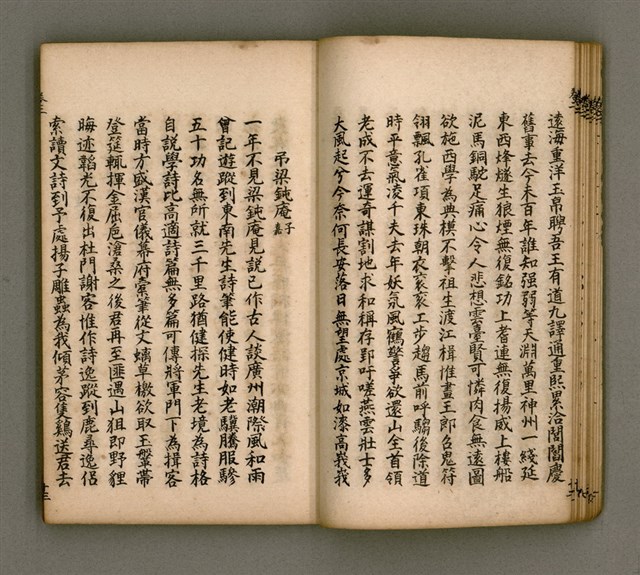 遠海重洋玉帛聘吾王有道九譯通重熙累洽閶闔慶
舊事去今未百年誰知強弱等天淵萬里神州一綫延
東西烽燧生狼煙無復銘功上耆連無復揚威上樓船
泥馬銅駝足痛心令人悲想雲臺賢可憐肉食無遠圖
欲施西學為典模不擊祖生渡江楫惟畫王郎召鬼符
翎飄孔雀項東珠朝衣袞袞工步趨馬前呼騶後除道
時平意氣凌千夫去年妖氛風鶴警爭欲還山全首領
老成不去運奇謀割地求和稱存郢吁嗟燕雲壯士多
大風起兮今奈何長安落日無望處京城如漆高峩峩
弔梁鈍庵子嘉
一年不見梁鈍庵見說已作古人談廣州潮際風和雨
曾記遊蹤到東南先生詩筆能使健時如老驥騰服驂
五十功名無所就三千里路猶健探先生老境為詩格
自說學詩比高適詩篇無多篇可傳將軍門下為揖客
當時方盛漢官儀幕府橐筆從文螭草檄欲取玉盤帶
登筵輒揮金屈卮滄桑之後君再至匪遇山狙即野貍
晦迹韜光不復出杜門謝客惟作詩逸蹤到鹿尋逸侶
索讀文詩到予處揚子雕蟲為我傾茅容隻鷄送君去